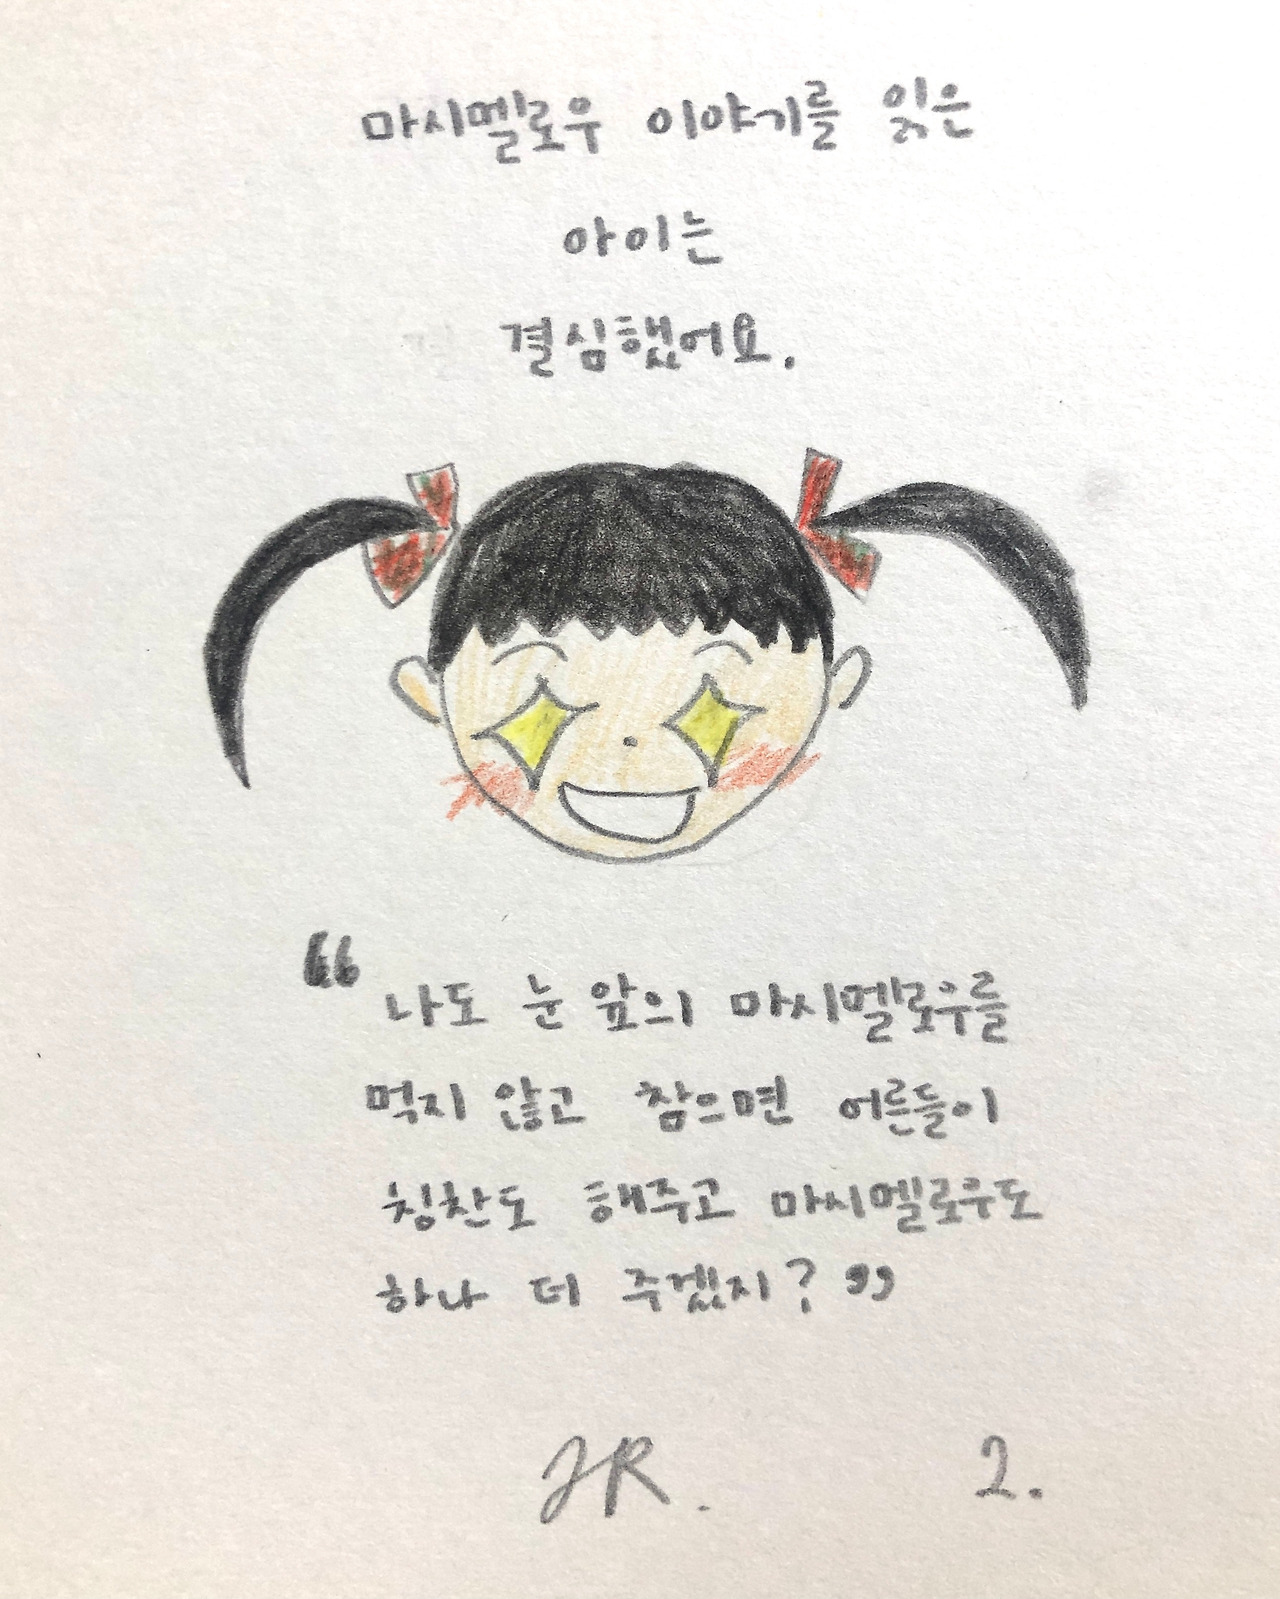 마시멜로우 이야기를 읽은
아이는
결심했어요.
“나도 눈 앞의 마시멜로우를
먹지 않고 참으면 어른들이
칭찬도 해주고 마시멜로우도
하나 더 주겠지?”
JR. 2.